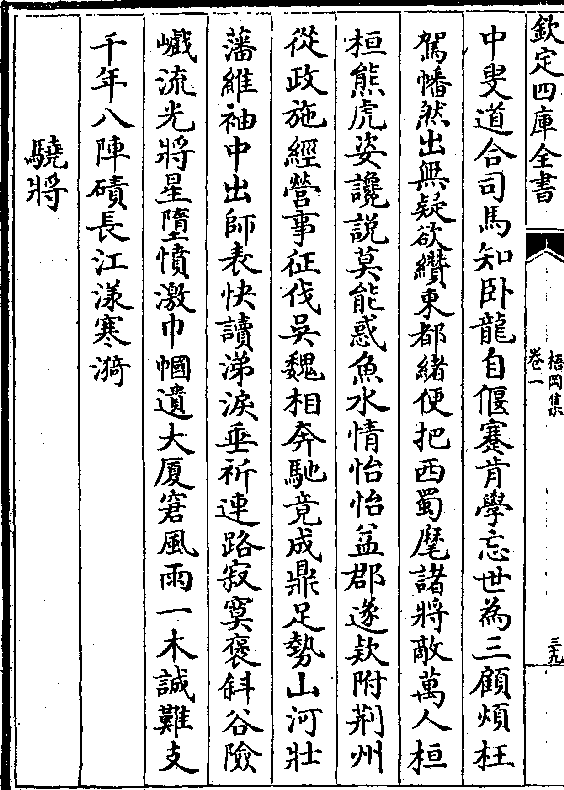 欽定四庫全書
梧岡集
卷一
三十九
中叟道合司馬知卧龍自偃蹇肯學忘世為三顧煩枉
駕幡然出無疑欲纘東都緒便把西蜀麾諸將敵萬人桓
桓熊虎姿讒説莫能惑魚水情怡怡益郡遂欵附荆州
從政施經營事征伐吳魏相奔馳竟成鼎足勢山河壯
藩維袖中出師表快讀涕淚垂祈連路寂寞褒斜谷險
巇流光將星墮憤激巾幗遺大厦窘風雨一木誠難支
千年八陣磧長江漾寒漪
驍將